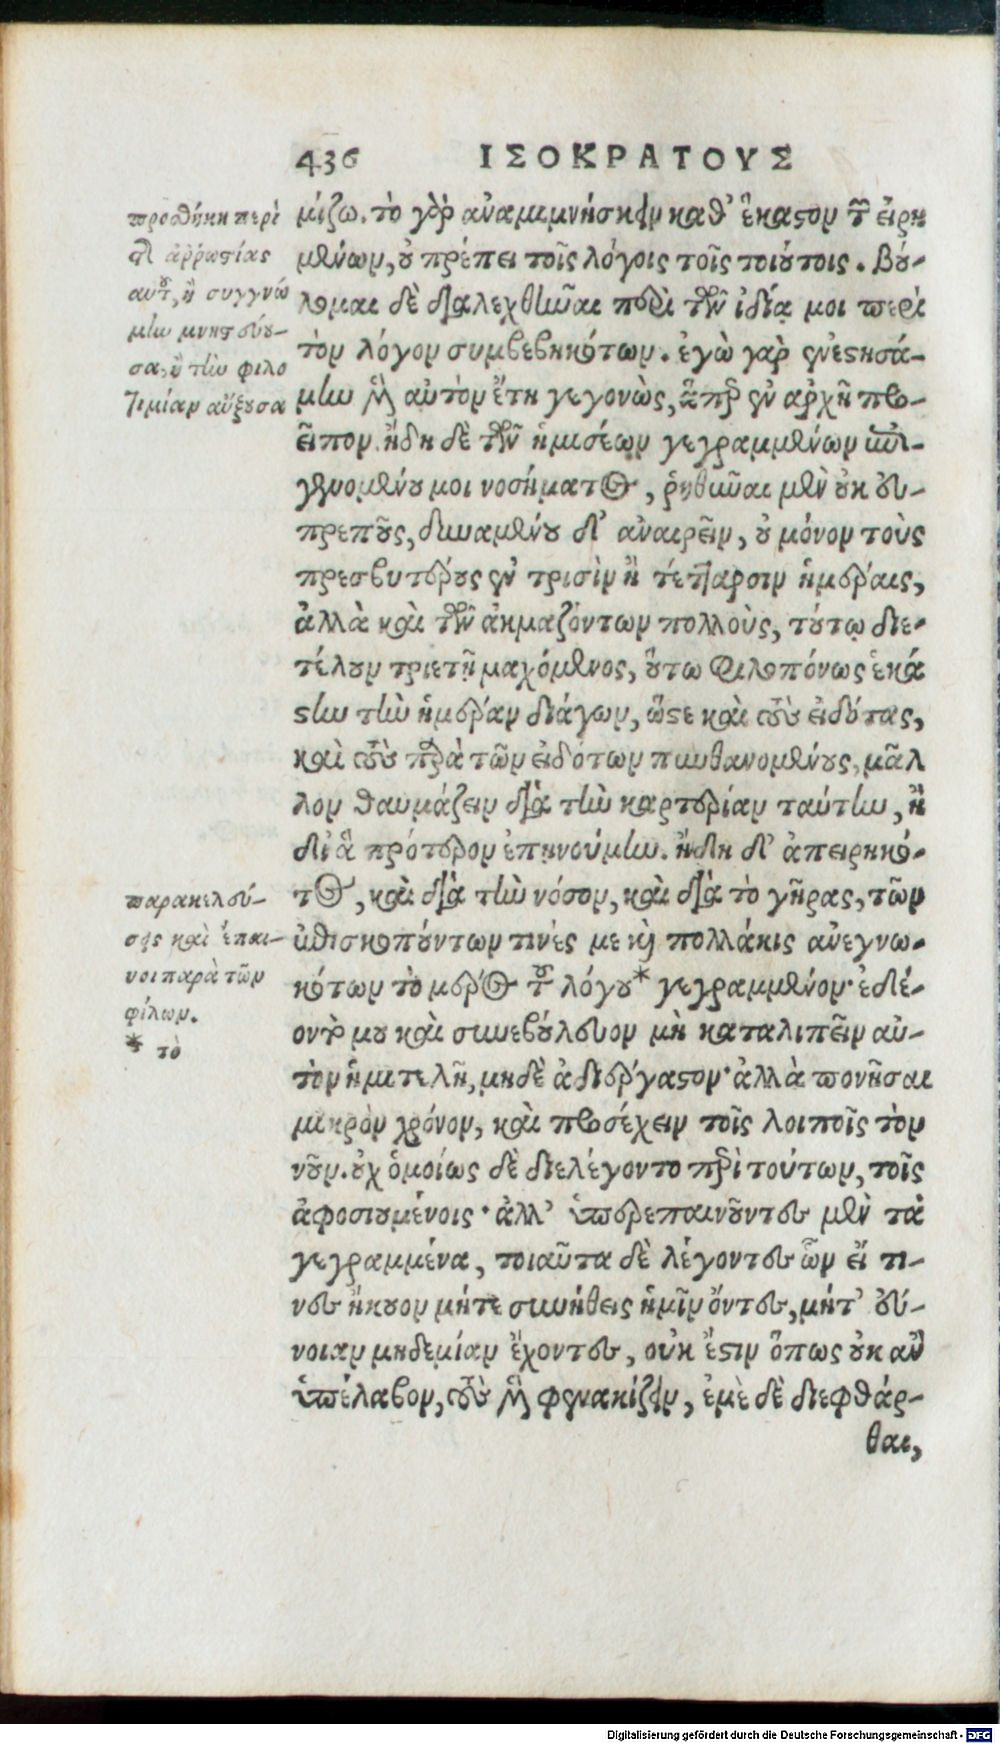 436 ΙΣΟΚΡΑΤΟΥΣ
μίζω. τὸ γὰρ ἀναμιμνήσκειν καθ᾽ ἕκαστον τῶν εἰρη
μένων, οὐ πρέπει τοῖς λόγοις τοῖς τοιούτοις. βού-
λομαι δὲ διαλεχθῆναι περὶ τῶν ἰδίᾳ μοι περὶ
τὸν λόγον συμβεβηκότων. ἐγὼ γὰρ ἐνεστησά-
μην μὲν αὐτὸν ἔτη γεγονὼς, ὅσαπερ ἐν ἀρχῇ προ-
εῖπον. ἤδη δὲ τῶν ἡμισέων γεγραμμένων ἐπι-
γενομένου μοι νοσήματος, ῥηθῆναι μὲν οὐκ εὐ-
πρεποῦς, δυναμένου δ᾽ ἀναιρεῖν, οὐ μόνον τοὺς
πρεσβυτέρους ἐν τρισὶν ἢ τέτταρσιν ἡμέραις,
ἀλλὰ καὶ τῶν ἀκμαζόντων πολλοὺς, τούτῳ διε-
τέλουν τριετῆ μαχόμενος, οὕτω φιλοπόνως ἑκά
στην τὴν ἡμέραν διάγων, ὥστε καὶ τοὺς εἰδότας,
καὶ τοὺς παρὰ τῶν εἰδότων πυνθανομένους, μᾶλ
λον θαυμάζειν διὰ τὴν καρτερίαν ταύτην, ἢ
δι᾽ ἃ πρότερον ἐπῃνούμην. ἤδη δ᾽ ἀπειρηκό-
τος, καὶ διὰ τὴν νόσον, καὶ διὰ τὸ γῆρας, τῶν
ἐπισκοπούντων τινές με καὶ πολλάκις ἀνεγνω-
κότων τὸ μέρος τοῦ λόγου* γεγραμμένον· ἐδέ-
οντό μου καὶ συνεβούλευον μὴ καταλιπεῖν αὐ-
τὸν ἡμιτελῆ, μηδὲ ἀδιέργαστον· ἀλλὰ πονῆσαι
μικρὸν χρόνον, καὶ προσέχειν τοῖς λοιποῖς τὸν
νοῦν. οὐχ ὁμοίως δὲ διελέγοντο περὶ τούτων, τοῖς
ἀφοσιουμένοις· ἀλλ᾽ ὑπερεπαινοῦντες μὲν τὰ
γεγραμμένα, τοιαῦτα δὲ λέγοντες ὧν εἴ τι-
νες ἤκουον μήτε συνήθεις ἡμῖν ὄντες, μήτ᾽ εὔ-
νοιαν μηδεμίαν ἔχοντες, οὐκ ἔστιν ὅπως οὐκ ἂν
ὑπέλαβον, τοὺς μὲν φενακίζειν, ἐμὲ δὲ διεφθάρ-
θαι,
προσθήκη περὶ
τῆς ἀῤῥωστίας
αὐτοῦ, ἢ συγγνώ
μην μνηστεύου-
σα, ἢ τὴν φιλο
τιμίαν αὔξουσα
παρακελεύ-
σεις καὶ ἔπαι-
νοι παρὰ τῶν
φίλων.
* τὸ
Digitalisierung gefördert durch die Deutsche Forschungsgemeinschaft - DFG